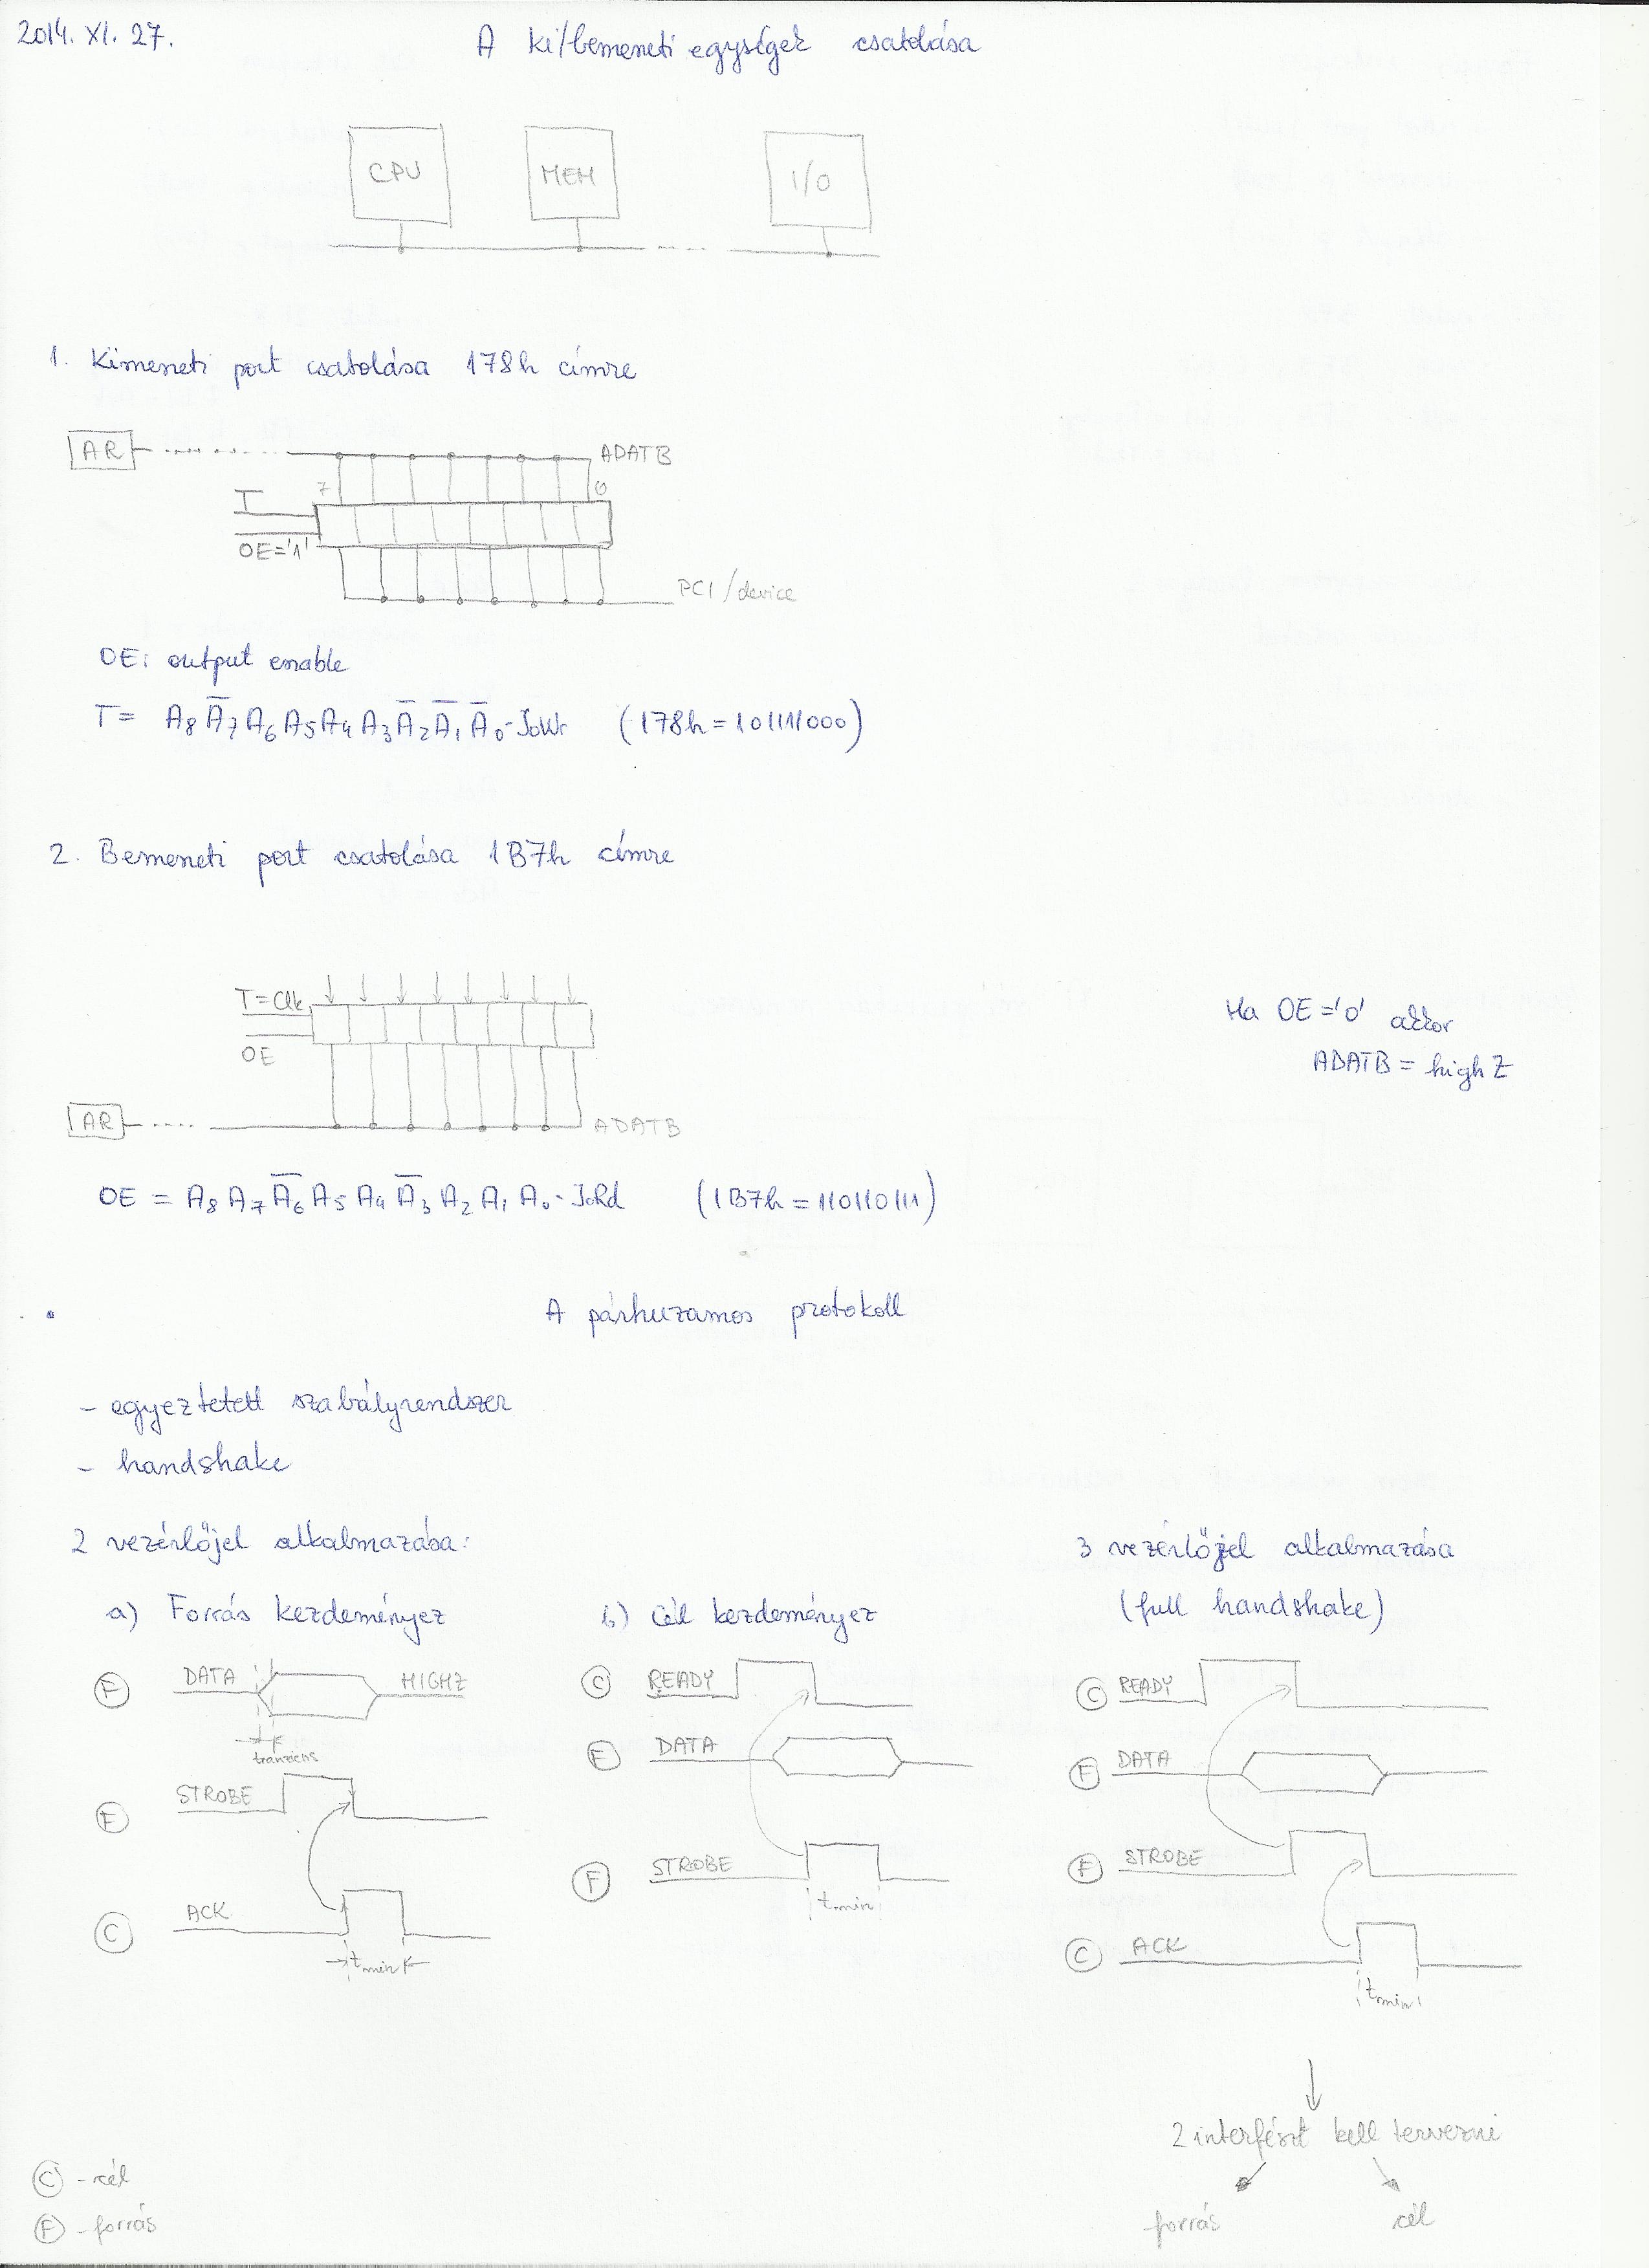 2014. XI. 27.
A ki/bemeneti egységek csatolása
CPU MEM I/O
1. Kimeneti port csatolása 178h címre
AR ADATB
7 0
T
OE='1'
PCI/device
OE: output enable
T = A₈ A̅₇ A₆ A₅ A₄ A₃ A̅₂ A̅₁ A̅₀·IoWr (178h = 101111000)
2. Bemeneti port csatolása 1B7h címre
T=Clk
OE
Ha OE='0' akkor
ADATB = high Z
AR ADATB
OE = A₈ A₇ A̅₆ A₅ A₄ A̅₃ A₂ A₁ A₀·IoRd (1B7h = 110110111)
A párhuzamos protokoll
- egyeztetett szabályrendszer
- handshake
2 vezérlőjel alkalmazása:
a) Forrás kezdeményez
F DATA HIGHZ
tranziens
F STROBE
C ACK
tmin
b) Cél kezdeményez
C READY
F DATA
F STROBE
tmin
3 vezérlőjel alkalmazása
(full handshake)
C READY
F DATA
F STROBE
C ACK
tmin
2 interfészt kell tervezni
forrás cél
C - cél
F - forrás